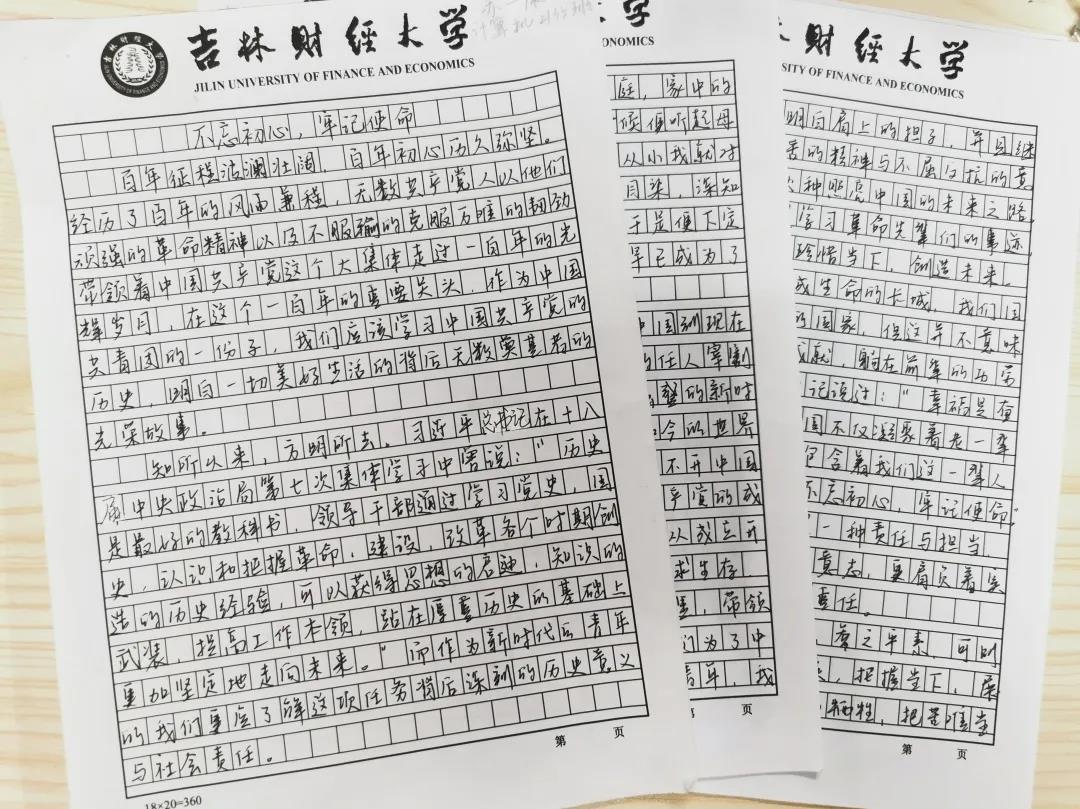 吉林财经大学
JILIN UNIVERSITY OF FINANCE AND ECONOMICS
不忘初心，牢记使命
百年征程波澜壮阔，百年初心历久弥坚。
经历了百年的风雨兼程，无数共产党人以他们
顽强的革命精神以及不服输的克服万难的韧劲
带领着中国共产党这个大集体走过一百年的光
辉岁月，在这个一百年的重要关头，作为中国
共青团的一份子，我们应该学习中国共产党的
历史，明白一切美好生活的背后无数奠基者的
光荣故事。
知所以来，方明所去，习近平总书记在十八
届中央政治局第七次集体学习中曾说：“历史
是最好的教科书，领导干部通过学习党史，国
史，认识和把握革命，建设，改革各个时期创
造的历史经验，可以获得思想的启迪，知识的
武装，提高工作本领，站在厚重历史的基础上
更加坚定地走向未来。”而作为新时代 青年
的我们更应了解这项任务背后深刻的历史意义
与社会责任。
第 页
18×20=360
学
ECONOMICS
庭，家中的
候便听起母
从小我就对
目染，深知
于是便下定
早已成为了
中国到现在
的任人宰割
盛的新时
如今的世界
不开中国
产党的成
以成立开
求生存
，带领
们为了中
青年，我
页
财经大学
SITY OF FINANCE AND ECONOMICS
明白肩上的担子，并且继
苦的精神与不屈反抗的意
火种照亮中国的未来之路
学习革命先辈们的事迹
珍惜当下，创造未来。
成生命的长城，我们国
的国家，但这并不意味
成就，躺在前辈的功劳
记说过：“幸福是奋
国不仅凝聚着老一辈
包含着我们这一辈人
不忘初心，牢记使命”
一种责任与担当
意志，更肩负着实
重任。
，察之平素，可则
，把握当下，展
牺牲，把
第 页